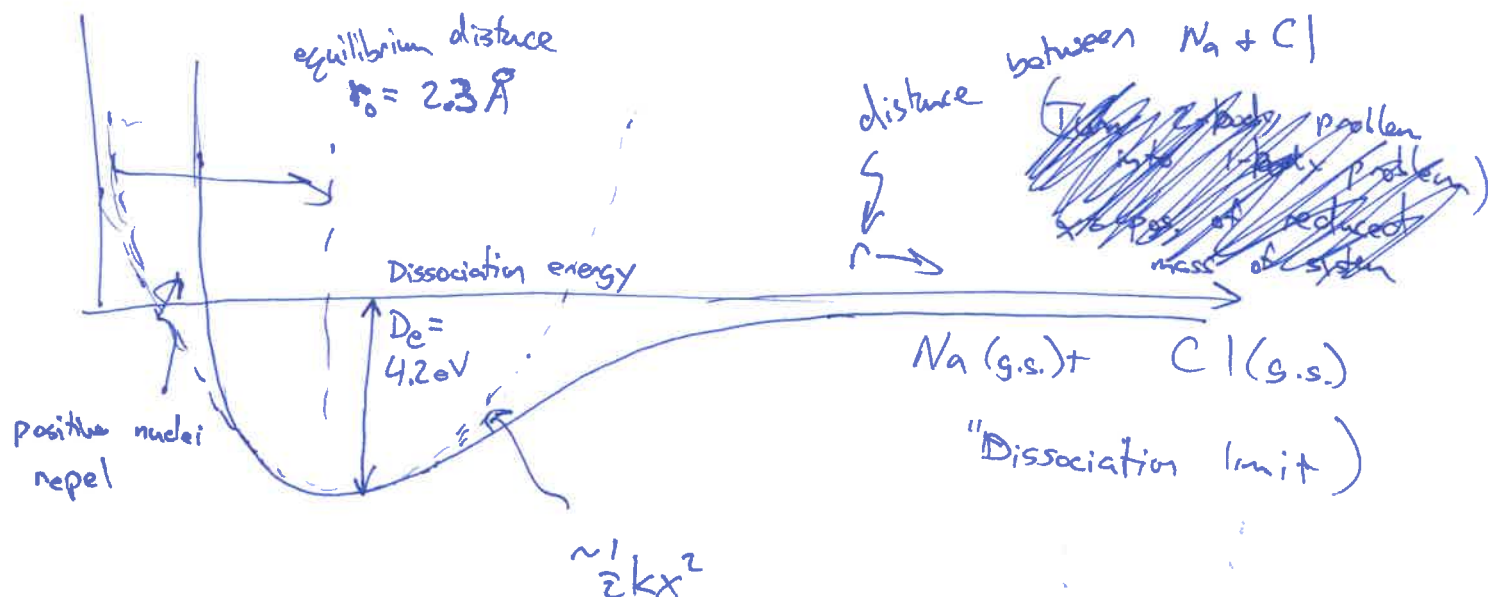 equilibrium distance
r₀ = 2.3 Å
distance between Na + Cl
(Turn 2-body problem
into 1-body problem)
of reduced
mass of system
r
Dissociation energy
Dₑ =
4.2 eV
Na (g.s.) + Cl (g.s.)
"Dissociation limit)
positive nuclei
repel
~½kx²